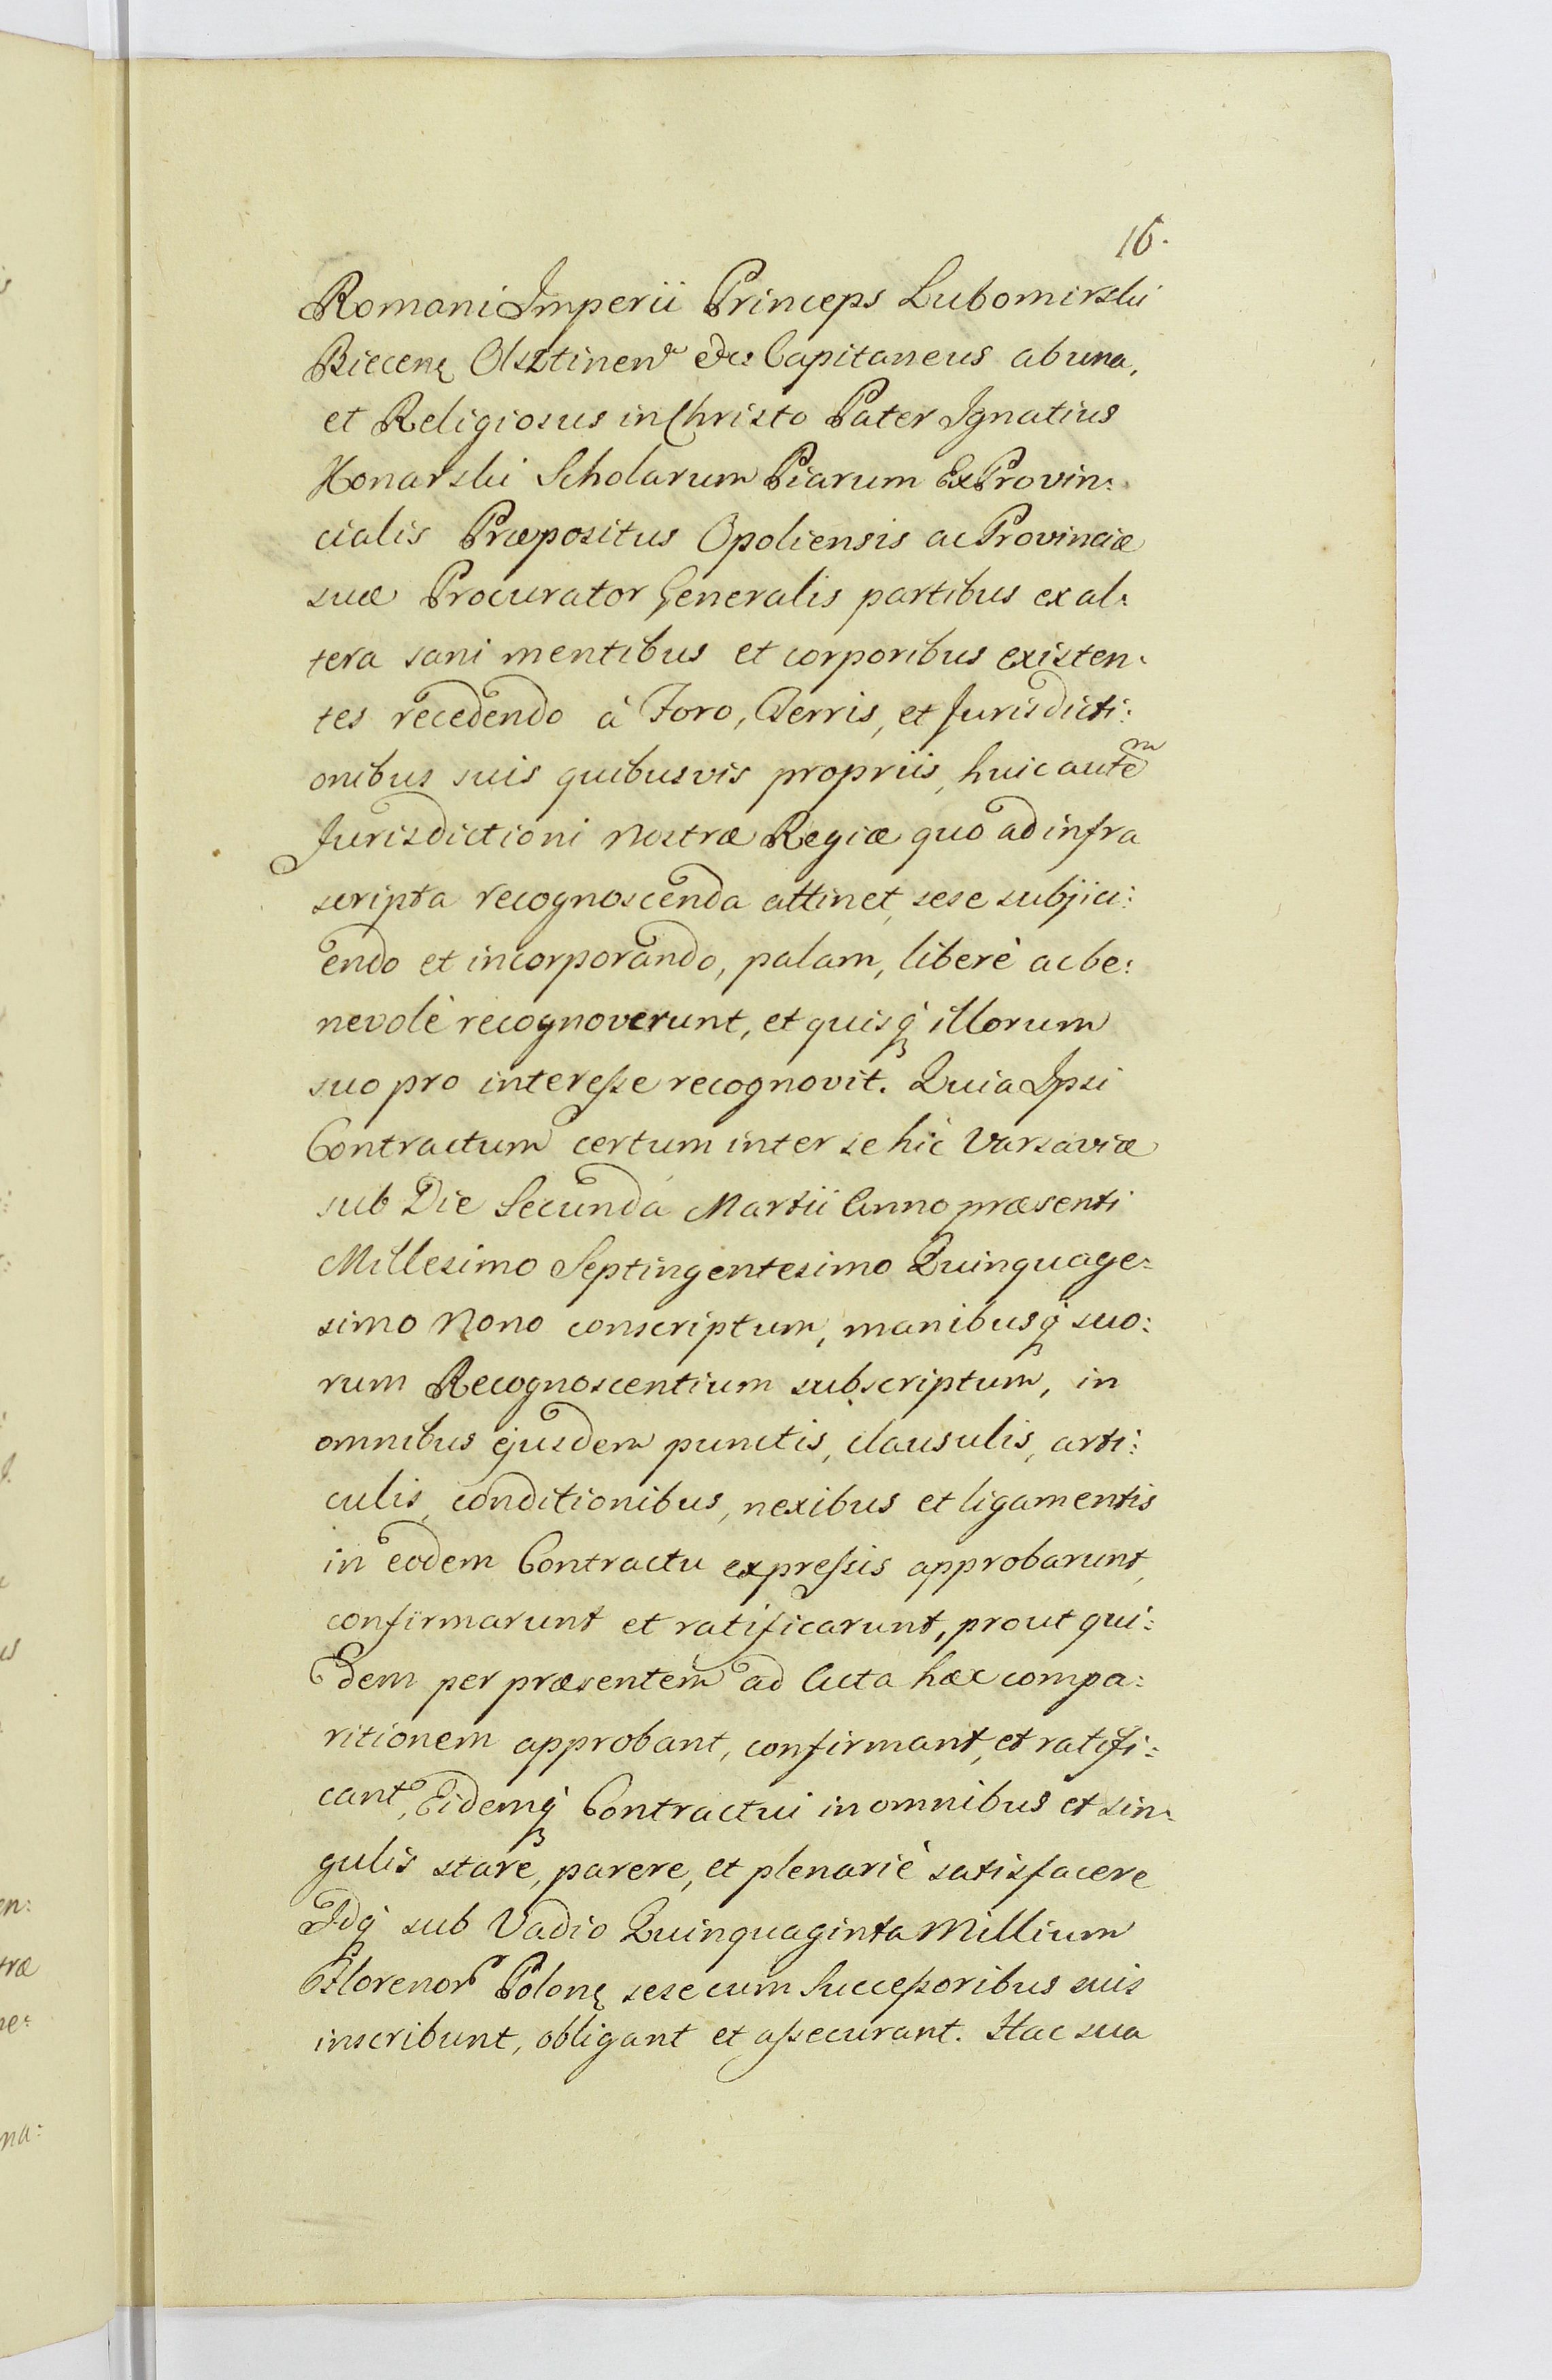 16.
Romani Imperii Princeps Lubomirski
Biecenę Olsztinen &c Capitaneus ab una,
et Religiosus in Christo Pater Ignatius
Konarski Scholarum Piarum Ex Provin:
cialis Præpositus Opoliensis ac Provinciæ
suæ Procurator Generalis partibus ex al:
tera sani mentibus et corporibus existen:
tes recedendo à Foro, Terris, et Jurisdicti:
onibus suis quibusvis propriis, huic autem
Jurisdictioni Nostræ Regiæ quo ad infra
scripta recognoscenda attinet, sese subjici:
endo et incorporando, palam, liberè ac be:
nevolè recognoverunt, et quisq́ illorum
suo pro interesse recognovit. Quia Ipsi
Contractum certum inter se hic Varsaviæ
sub Die Secunda Martii Anno præsenti
Millesimo Septingentesimo Quinquage:
simo Nono conscriptum, manibusq́ suo:
rum Recognoscentium subscriptum, in
omnibus ejusdem punctis, clausulis, arti:
culis, conditionibus, nexibus et ligamentis
in eodem Contractu expressis approbarunt,
confirmarunt et ratificarunt, prout qui:
dem per præsentem ad Acta hæc compa:
ritionem approbant, confirmant, et ratifi:
cant, Eidemq́ Contractui in omnibus et sin:
gulis stare, parere, et plenariè satisfacere
Idq́ sub Vadio Quinquaginta Millium
Florenor Polonę sese cum Successoribus suis
inscribunt, obligant et assecurant. Hac sua